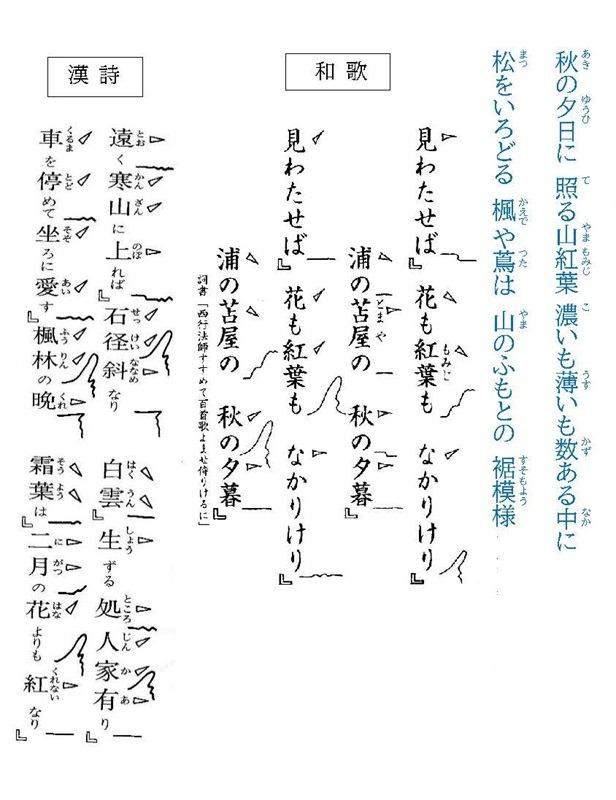 秋の夕日に 照る山紅葉 濃いも薄いも数ある中に
松をいろどる 楓や蔦は 山のふもとの 裾模様
和歌
見わたせば 花も紅葉も なかりけり
浦の苫屋の 秋の夕暮
見わたせば 花も紅葉も なかりけり
浦の苫屋の 秋の夕暮
詞書「西行法師すすめて百首歌よませ侍りけるに」
漢詩
遠く寒山に上れば 石径斜なり
白雲生ずる処人家有り
車を停めて坐ろに愛す 楓林の晩
霜葉は二月の花よりも紅なり